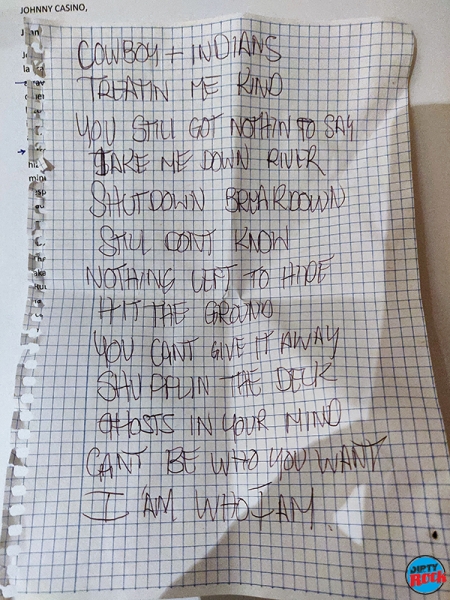 JOHNNY CASINO,
COWBOY + INDIANS
TREATIN ME KIND
YOU STILL GOT NOTHIN TO SAY
TAKE ME DOWN RIVER
SHUTDOWN BREAKDOWN
STILL DONT KNOW
NOTHING LEFT TO HIDE
HIT THE GROUND
YOU CANT GIVE IT AWAY
SHUFFLIN THE DECK
GHOSTS IN YOUR MIND
CANT BE WHO YOU WANT
I AM WHO I AM
DIRTY
ROCK